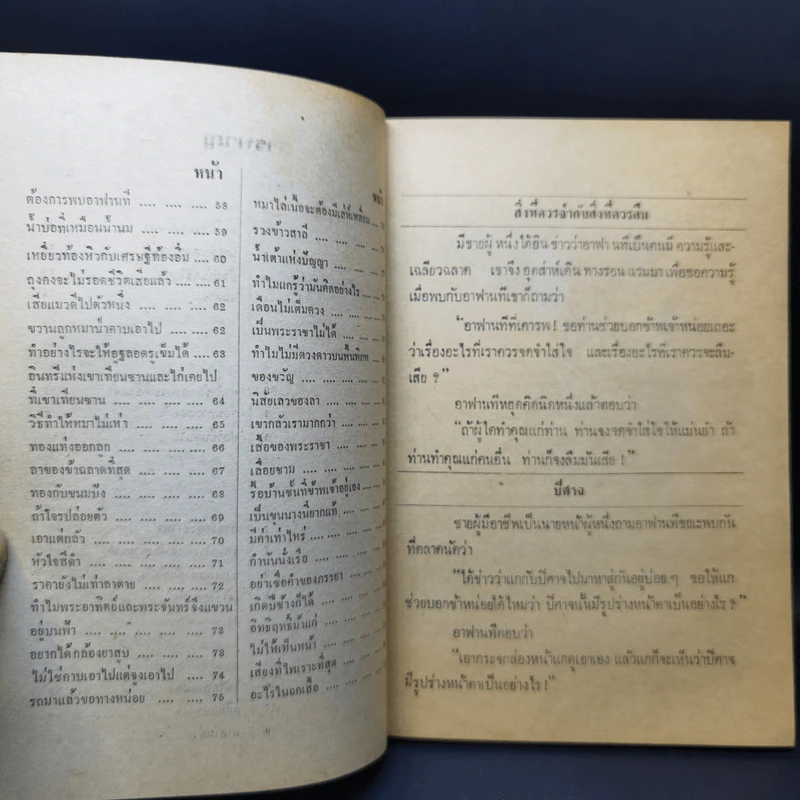 หน้า
ต้องการพบอาฟานที่ .... .... .... 58
น้ำบ่อที่เหมือนน้ำนม .... .... .... 59
เหยี่ยวท้องหิวกับเศรษฐีท้องอิ่ม .... 60
ถุงคงจะไม่รอดชีวิตเสียแล้ว .... 61
เสียแมวดีไปตัวหนึ่ง .... .... .... 62
ขวานถูกหมาป่าคาบเอาไป .... .... 62
ทำอย่างไรจะให้อูฐลอดรูเข็มได้ .... 63
อินทรีแห่งเขาเทียนซานและไก่เคยไป
ที่เขาเทียนซาน .... .... .... .... 64
วิธีทำให้หมาไม่เห่า .... .... .... 65
ทองแท่งออกลูก .... .... .... .... 66
ลาของข้าฉลาดที่สุด .... .... .... 67
ทองกับขนมปัง .... .... .... .... 68
ถ้าโจรปล่อยตัว .... .... .... .... 69
เอาแต่กลัว .... .... .... .... 70
หัวใจสีดำ .... .... .... .... 71
ราคายังไม่เท่าลาตาย .... .... .... 72
ทำไมพระอาทิตย์และพระจันทร์จึงแขวน
อยู่บนฟ้า .... .... .... .... .... 73
อยากได้กล้องยาสูบ .... .... .... 73
ไม่ใช่คาบเอาไปแต่จูงเอาไป .... 74
รถมาแล้วขอทางหน่อย .... .... 75
หน้า
หมาไล่เนื้อจะต้องมีเล่ห์เหลี่ยม
รวงข้าวสาลี .... .... ....
น้ำเต้าแห่งปัญญา .... ....
ทำไมแกรู้ว่ามันคิดอย่างไร ....
เดือนไม่เต็มดวง .... ....
เป็นพระราชาไม่ได้ .... ....
ทำไมไม่มีดวงดาวบนพื้นพิภพ
ของขวัญ .... .... ....
นิสัยเลวของลา .... ....
เขากลัวเรามากกว่า .... ....
เสื้อของพระราชา .... ....
เลื่อยชาม .... .... ....
รื้อบ้านชั้นที่ข้าพเจ้าอยู่เอง ....
เป็นขุนนางนี่ยากแท้ .... ....
มีค่าเท่าไหร่ .... .... ....
กำนันนั่งเรือ .... .... ....
อย่าเชื่อคำของภรรยา ....
เกิดปีช้างก็ได้ .... ....
อิทธิฤทธิ์ม้าแก่ .... ....
ไม่ให้เห็นหน้า .... ....
เสียงที่ไพเราะที่สุด ....
อะไรในอกเสื้อ .... ....
สิ่งที่ควรจำกับสิ่งที่ควรลืม
มีชายผู้หนึ่งได้ยินข่าวว่าอาฟานทีเป็นคนมีความรู้และ-
เฉลียวฉลาด เขาจึงอุตส่าห์เดินทางรอนแรมมาเพื่อขอความรู้
เมื่อพบกับอาฟานทีเขาก็ถามว่า
"อาฟานทีที่เคารพ! ขอท่านช่วยบอกข้าพเจ้าหน่อยเถอะ
ว่าเรื่องอะไรที่เราควรจดจำใส่ใจ และเรื่องอะไรที่เราควรจะลืม-
เสีย ?"
อาฟานทีหยุดคิดนิดหนึ่งแล้วตอบว่า
"ถ้าผู้ใดทำคุณแก่ท่าน ท่านจงจดจำใส่ใจให้แม่นยำ ถ้า
ท่านทำคุณแก่คนอื่น ท่านก็จงลืมมันเสีย !"
ปีศาจ
ชายผู้มีอาชีพเป็นนายหน้าผู้หนึ่งถามอาฟานทีขณะพบกัน
ที่ตลาดนัดว่า
"ได้ข่าวว่าแกกับปีศาจไปมาหาสู่กันอยู่บ่อย ๆ ขอให้แก
ช่วยบอกข้าหน่อยได้ไหมว่า ปีศาจนั้นมีรูปร่างหน้าตาเป็นอย่างไร ?"
อาฟานทีตอบว่า
"เอากระจกส่องหน้าแกดูเอาเอง แล้วแกก็จะเห็นว่าปีศาจ
มีรูปร่างหน้าตาเป็นอย่างไร!"